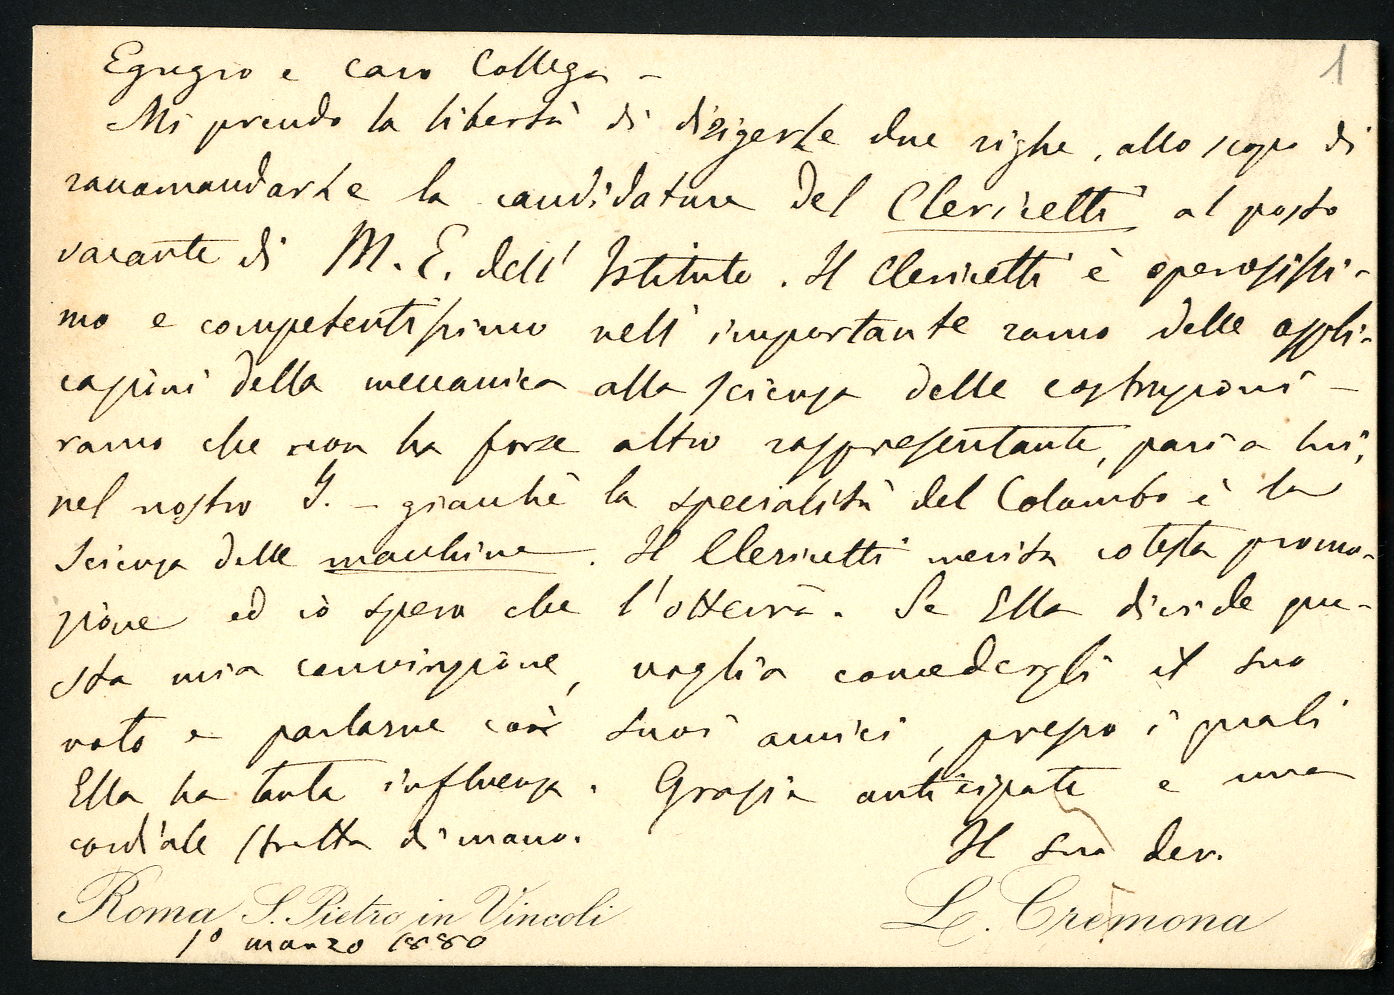 1
Egregio e caro Collega -
Mi prendo la libertà di dirigerle due righe, allo scopo di
raccomandarle la candidatura del Clericetti al posto
vacante di M. E. dell' Istituto. Il Clericetti è operosissi-
mo e competentissimo nell' importante ramo delle appli-
cazioni della meccanica alla scienza delle costruzioni -
ramo che non ha forse altro rappresentante, pari a lui,
nel nostro I. - giacchè la specialità del Colombo è la
Scienza delle macchine. Il Clericetti merita cotesta promo-
zione ed io spero che l'otterrà. Se Ella divide que-
sta mia convinzione, voglia concedergli il suo
voto e parlarne coi suoi amici, presso i quali
Ella ha tanta influenza. Grazie anticipate e una
cordiale stretta di mano.
Il suo dev.
Roma S. Pietro in Vincoli L. Cremona
1º marzo 1880